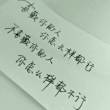 不喜欢你的人
你怎么样都不行
不喜欢你的人
你怎么样都不行